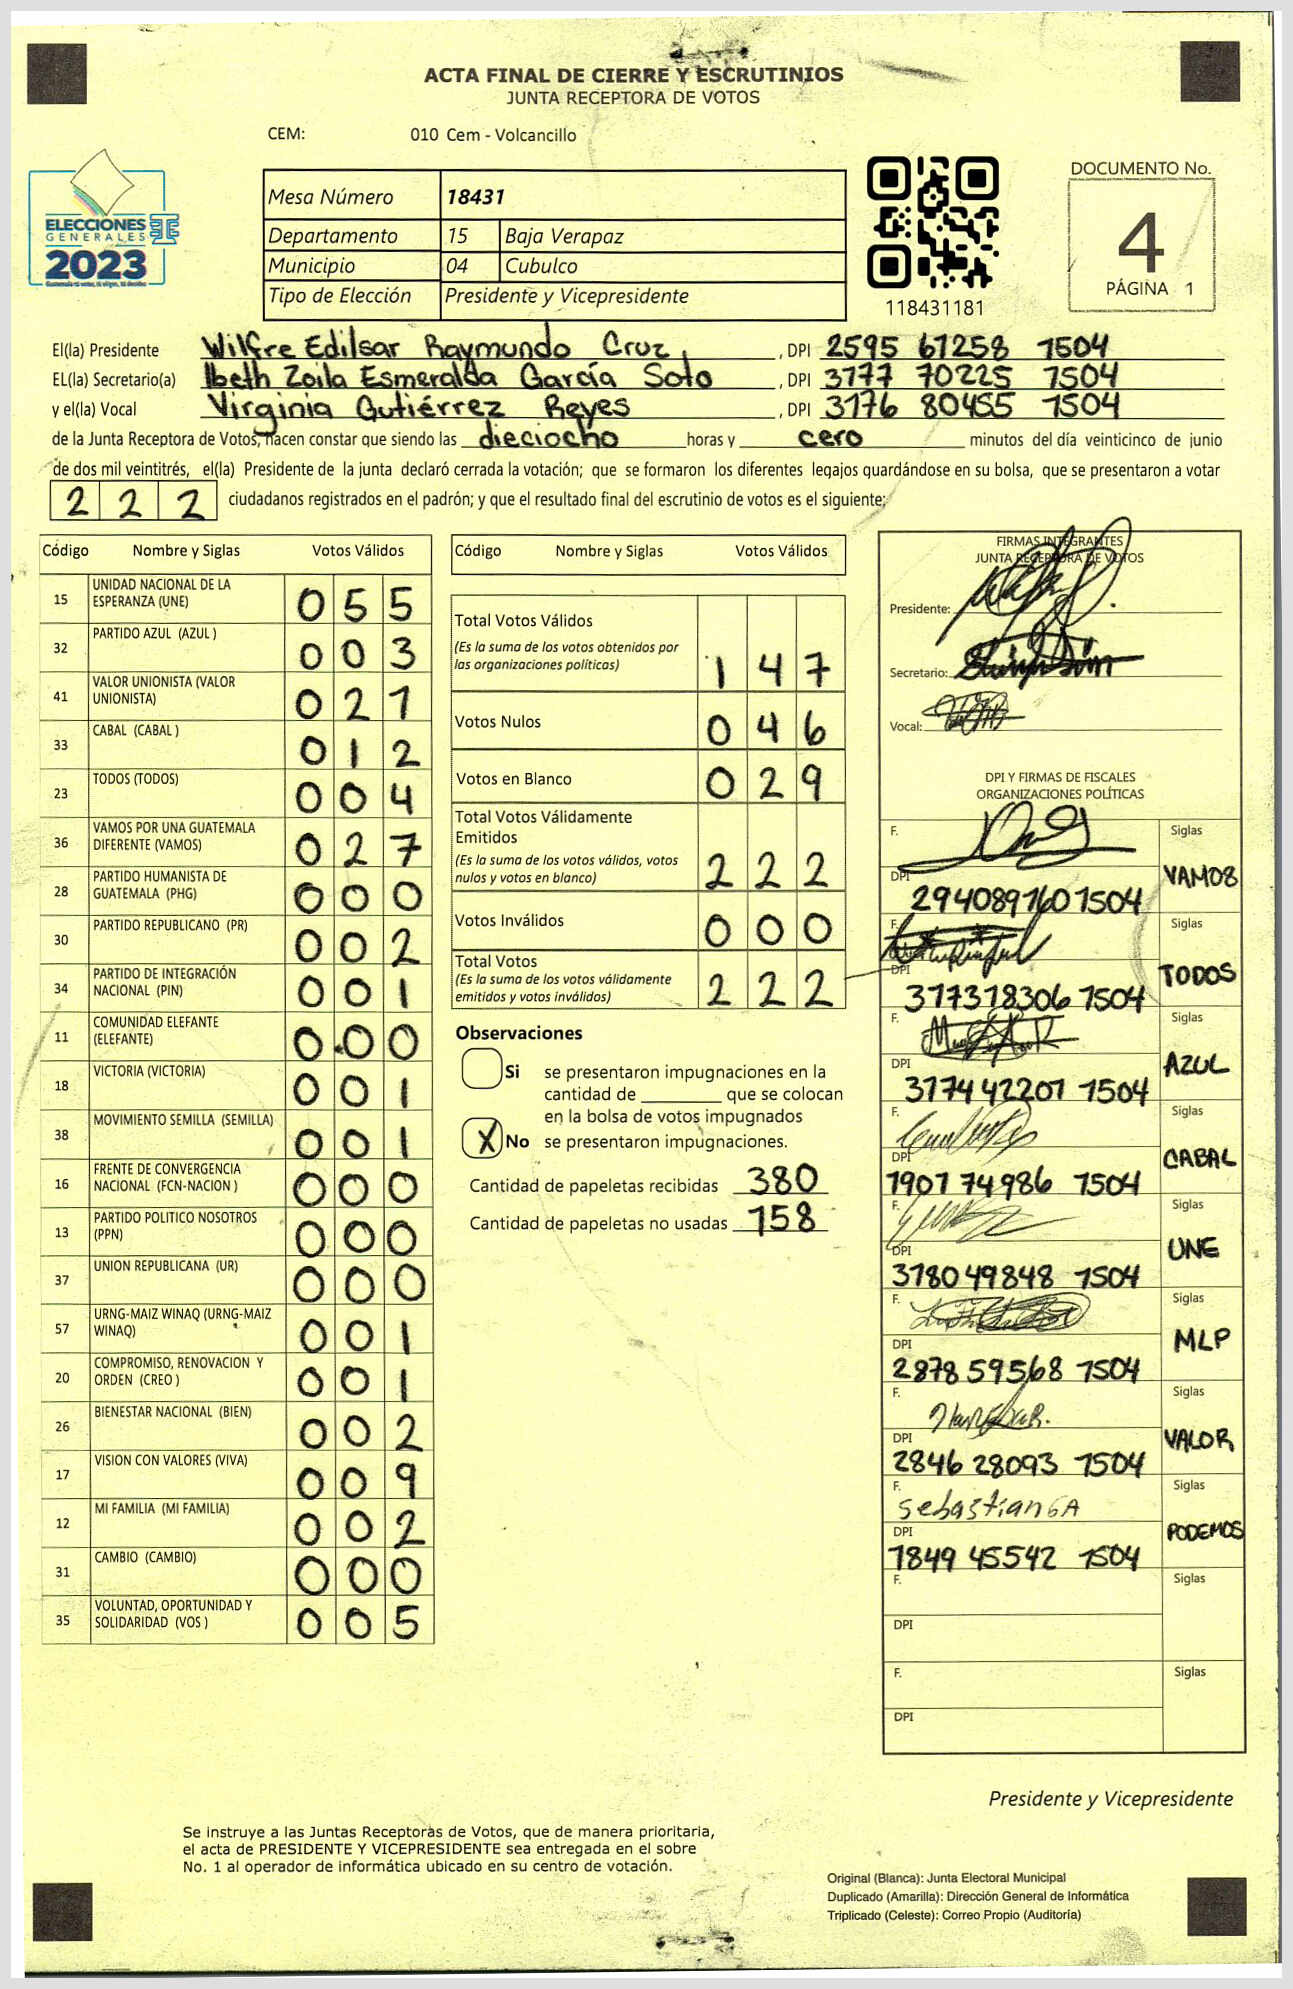 ACTA FINAL DE CIERRE Y ESCRUTINIOS
JUNTA RECEPTORA DE VOTOS
CEM: 010 Cem - Volcancillo
ELECCIONES
GENERALES
2023
Mesa Número 18431
Departamento 15 Baja Verapaz
Municipio 04 Cubulco
Tipo de Elección Presidente y Vicepresidente
118431181
DOCUMENTO No.
4
PÁGINA 1
El(la) Presidente Wilfre Edilsar Raymundo Cruz, , DPI 2595 61258 1504
EL(la) Secretario(a) Ibeth Zoila Esmeralda García Soto , DPI 3177 70225 1504
y el(la) Vocal Virginia Gutiérrez Reyes , DPI 3176 80455 1504
de la Junta Receptora de Votos, hacen constar que siendo las dieciocho horas y cero minutos del día veinticinco de junio
de dos mil veintitrés, el(la) Presidente de la junta declaró cerrada la votación; que se formaron los diferentes legajos guardándose en su bolsa, que se presentaron a votar
2 2 2 ciudadanos registrados en el padrón; y que el resultado final del escrutinio de votos es el siguiente;
Código Nombre y Siglas Votos Válidos
15 UNIDAD NACIONAL DE LA ESPERANZA (UNE) 0 5 5
32 PARTIDO AZUL (AZUL ) 0 0 3
41 VALOR UNIONISTA (VALOR UNIONISTA) 0 2 1
33 CABAL (CABAL ) 0 1 2
23 TODOS (TODOS) 0 0 4
36 VAMOS POR UNA GUATEMALA DIFERENTE (VAMOS) 0 2 7
28 PARTIDO HUMANISTA DE GUATEMALA (PHG) 0 0 0
30 PARTIDO REPUBLICANO (PR) 0 0 2
34 PARTIDO DE INTEGRACIÓN NACIONAL (PIN) 0 0 1
11 COMUNIDAD ELEFANTE (ELEFANTE) 0 0 0
18 VICTORIA (VICTORIA) 0 0 1
38 MOVIMIENTO SEMILLA (SEMILLA) 0 0 1
16 FRENTE DE CONVERGENCIA NACIONAL (FCN-NACION ) 0 0 0
13 PARTIDO POLITICO NOSOTROS (PPN) 0 0 0
37 UNION REPUBLICANA (UR) 0 0 0
57 URNG-MAIZ WINAQ (URNG-MAIZ WINAQ) 0 0 1
20 COMPROMISO, RENOVACION Y ORDEN (CREO ) 0 0 1
26 BIENESTAR NACIONAL (BIEN) 0 0 2
17 VISION CON VALORES (VIVA) 0 0 9
12 MI FAMILIA (MI FAMILIA) 0 0 2
31 CAMBIO (CAMBIO) 0 0 0
35 VOLUNTAD, OPORTUNIDAD Y SOLIDARIDAD (VOS ) 0 0 5
Código Nombre y Siglas Votos Válidos
Total Votos Válidos
(Es la suma de los votos obtenidos por
las organizaciones políticas) 1 4 7
Votos Nulos 0 4 6
Votos en Blanco 0 2 9
Total Votos Válidamente
Emitidos
(Es la suma de los votos válidos, votos
nulos y votos en blanco) 2 2 2
Votos Inválidos 0 0 0
Total Votos
(Es la suma de los votos válidamente
emitidos y votos inválidos) 2 2 2
Observaciones
Si se presentaron impugnaciones en la
cantidad de ________ que se colocan
en la bolsa de votos impugnados
X No se presentaron impugnaciones.
Cantidad de papeletas recibidas 380
Cantidad de papeletas no usadas 158
FIRMAS INTEGRANTES
JUNTA RECEPTORA DE VOTOS
Presidente:
Secretario:
Vocal:
DPI Y FIRMAS DE FISCALES
ORGANIZACIONES POLÍTICAS
F. Siglas
DPI 294089160 1504 VAMOS
F. Siglas
DPI 317378306 1504 TODOS
F. Siglas
DPI 3174 42201 1504 AZUL
F. Siglas
DPI 1901 74986 1504 CABAL
F. Siglas
DPI 3180 49848 1504 UNE
F. Siglas
DPI 2878 59568 1504 MLP
F. Siglas
DPI 2846 28093 1504 VALOR
F. Sebastian GA Siglas
DPI 1849 45542 1504 PODEMOS
F. Siglas
DPI
F. Siglas
DPI
Presidente y Vicepresidente
Se instruye a las Juntas Receptoras de Votos, que de manera prioritaria,
el acta de PRESIDENTE Y VICEPRESIDENTE sea entregada en el sobre
No. 1 al operador de informática ubicado en su centro de votación.
Original (Blanca): Junta Electoral Municipal
Duplicado (Amarilla): Dirección General de Informática
Triplicado (Celeste): Correo Propio (Auditoría)